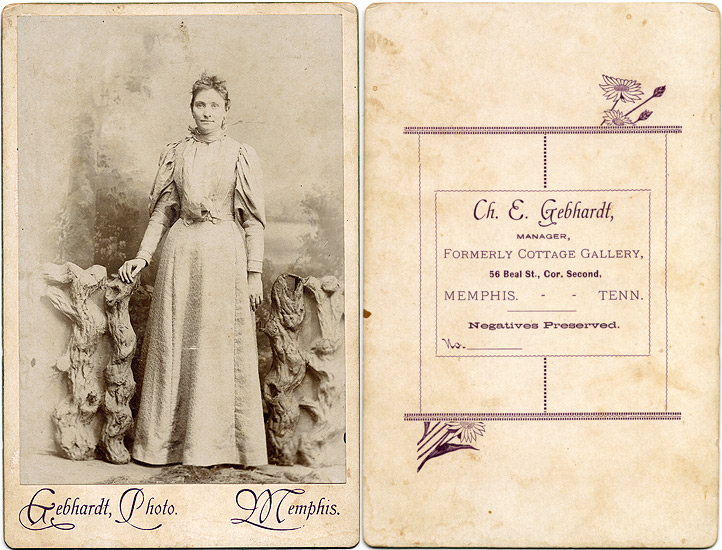 Gebhardt, Photo. Memphis.
Ch. E. Gebhardt,
MANAGER,
FORMERLY COTTAGE GALLERY,
56 Beal St., Cor. Second,
MEMPHIS. - - TENN.
Negatives Preserved.
No.